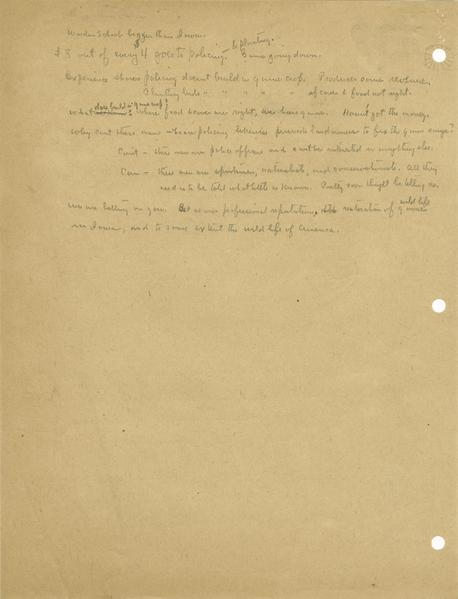 Warden School bigger than Iowa.
$3 out of every $4 goes to policing, & planting. Game going down.
Experience shows policing doesnt build up game crop. Produces some revenue.
Planting birds " " " " " if cover & food not right.
What does build up game crop? Where food & cover are right, we have game. Havent got the money.
Why cant these men whose policing licenses persuade landowners to fix the game range?
Cant – these men are police officers and cant be interested in anything else.
Can – these men are sportsmen, naturalists, and conservationists. All they
need is to be told what little is known. Pretty soon they'll be telling us.
We are betting on you. Bet is our professional reputation, restoration of wild life
in Iowa, and to some extent the wild life of America.